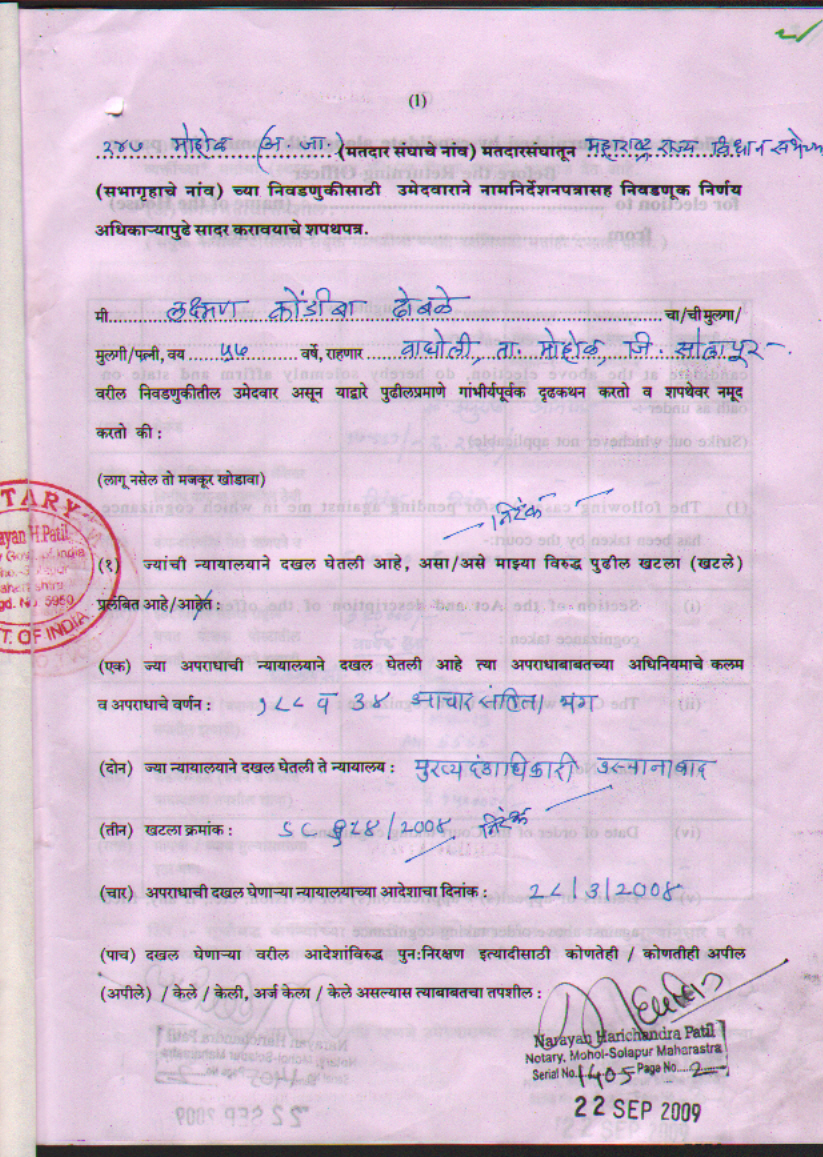 (1)
२४७ मोहोळ (अ.जा.) (मतदार संघाचे नांव) मतदारसंघातून महाराष्ट्र राज्य विधान सभेच्या
(सभागृहाचे नांव) च्या निवडणुकीसाठी उमेदवाराने नामनिर्देशनपत्रासह निवडणूक निर्णय
अधिकाऱ्यापुढे सादर करावयाचे शपथपत्र.
मी लक्ष्मण कोंडीबा ढोबळे चा/ची मुलगा/
मुलगी/पत्नी, वय ५७ वर्षे, राहणार वाघोली, ता. मोहोळ, जि. सोलापूर
वरील निवडणुकीतील उमेदवार असून याद्वारे पुढीलप्रमाणे गांभीर्यपूर्वक दृढकथन करतो व शपथेवर नमूद
करतो की :
(लागू नसेल तो मजकूर खोडावा)
निरंक
(१) ज्यांची न्यायालयाने दखल घेतली आहे, असा/असे माझ्या विरुद्ध पुढील खटला (खटले)
प्रलंबित आहे/आहेत :
(एक) ज्या अपराधाची न्यायालयाने दखल घेतली आहे त्या अपराधाबाबतच्या अधिनियमाचे कलम
व अपराधाचे वर्णन : १८८ व ३४ आचार संहिता भंग
(दोन) ज्या न्यायालयाने दखल घेतली ते न्यायालय : मुख्यदंडाधिकारी उस्मानाबाद
(तीन) खटला क्रमांक : SC /2008 निरंक
(चार) अपराधाची दखल घेणाऱ्या न्यायालयाच्या आदेशाचा दिनांक : 2८/3/2008
(पाच) दखल घेणाऱ्या वरील आदेशांविरुद्ध पुन:निरक्षण इत्यादीसाठी कोणतेही / कोणतीही अपील
(अपीले) / केले / केली, अर्ज केला / केले असल्यास त्याबाबतचा तपशील :
Narayan Harichandra Patil
Notary, Mohol-Solapur Maharastra
Serial No. 1405 Page No. 2
22 SEP 2009
TARY
ayan H.Patil
Govt. of India
gd. No. 5950
T. OF INDIA